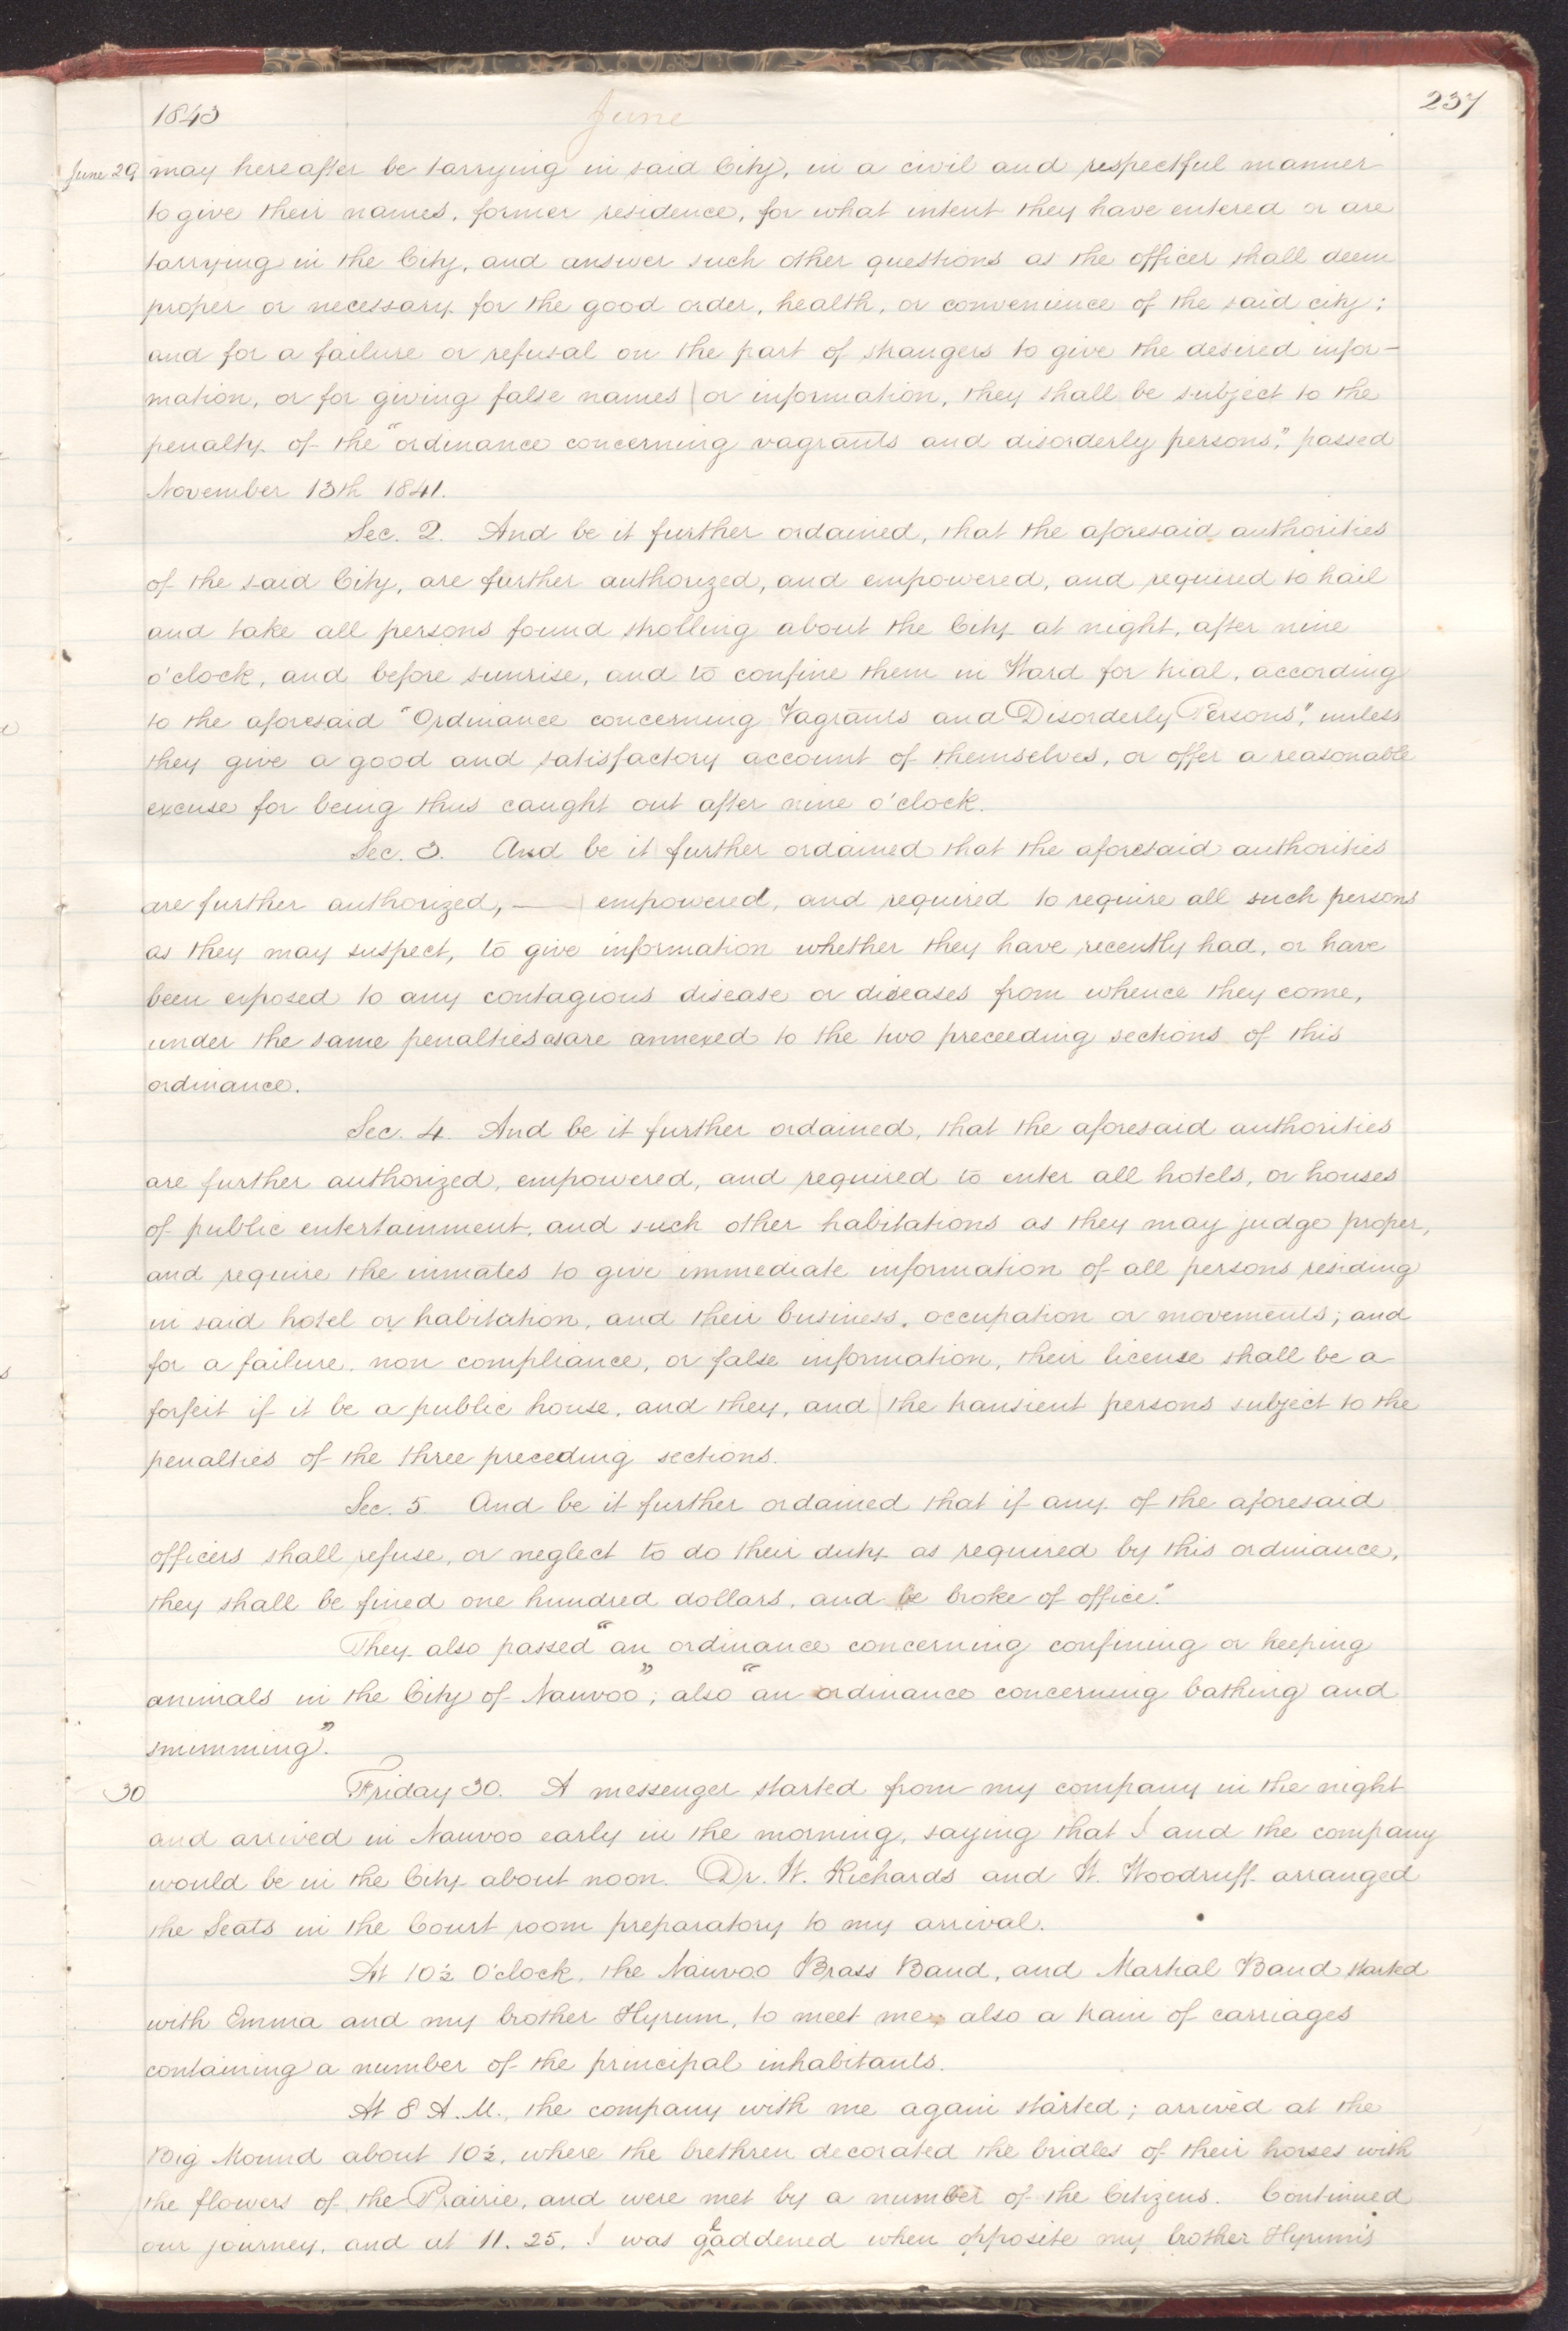 1843 June 237
June 29 may hereafter be tarrying in said City, in a civil and respectful manner
to give their names, former residence, for what intent they have entered or are
tarrying in the City, and answer such other questions as the officer shall deem
proper or necessary for the good order, health, or convenience of the said city;
and for a failure or refusal on the part of strangers to give the desired infor-
mation, or for giving false names or information, they shall be subject to the
penalty of the "ordinance concerning vagrants and disorderly persons," passed
November 13th 1841.
Sec. 2. And be it further ordained, that the aforesaid authorities
of the said City, are further authorized, and empowered, and required to hail
and take all persons found strolling about the City at night, after nine
o'clock, and before sunrise, and to confine them in Ward for trial, according
to the aforesaid "Ordinance concerning Vagrants and Disorderly Persons", unless
they give a good and satisfactory account of themselves, or offer a reasonable
excuse for being thus caught out after nine o'clock.
Sec. 3. And be it further ordained that the aforesaid authorities
are further authorized, — empowered, and required to require all such persons
as they may suspect, to give information whether they have recently had, or have
been exposed to any contagious disease or diseases from whence they come,
under the same penalties as are annexed to the two preceeding sections of this
ordinance.
Sec. 4. And be it further ordained, that the aforesaid authorities
are further authorized, empowered, and required to enter all hotels, or houses
of public entertainment, and such other habitations as they may judge proper,
and require the inmates to give immediate information of all persons residing
in said hotel or habitation, and their business, occupation or movements; and
for a failure, non compliance, or false information, their license shall be a
forfeit if it be a public house, and they, and the transient persons subject to the
penalties of the three preceding sections.
Sec. 5. And be it further ordained that if any of the aforesaid
officers shall refuse, or neglect to do their duty as required by this ordinance,
they shall be fined one hundred dollars, and be broke of office."
They also passed "an ordinance concerning confining or keeping
animals in the City of Nauvoo"; also "an ordinance concerning bathing and
swimming".
30 Friday 30. A messenger started from my company in the night
and arrived in Nauvoo early in the morning, saying that I and the company
would be in the City about noon. Dr. W. Richards and W. Woodruff arranged
the Seats in the Court room preparatory to my arrival.
At 10½ O'clock, the Nauvoo Brass Band, and Martial Band started
with Emma and my brother Hyrum, to meet me, also a train of carriages
containing a number of the principal inhabitants.
At 8 A.M., the company with me again started; arrived at the
Big Mound about 10½, where the brethren decorated the bridles of their horses with
the flowers of the Prairie, and were met by a number of the Citizens. Continued
our journey, and at 11.25, I was gladdened when opposite my brother Hyrum's